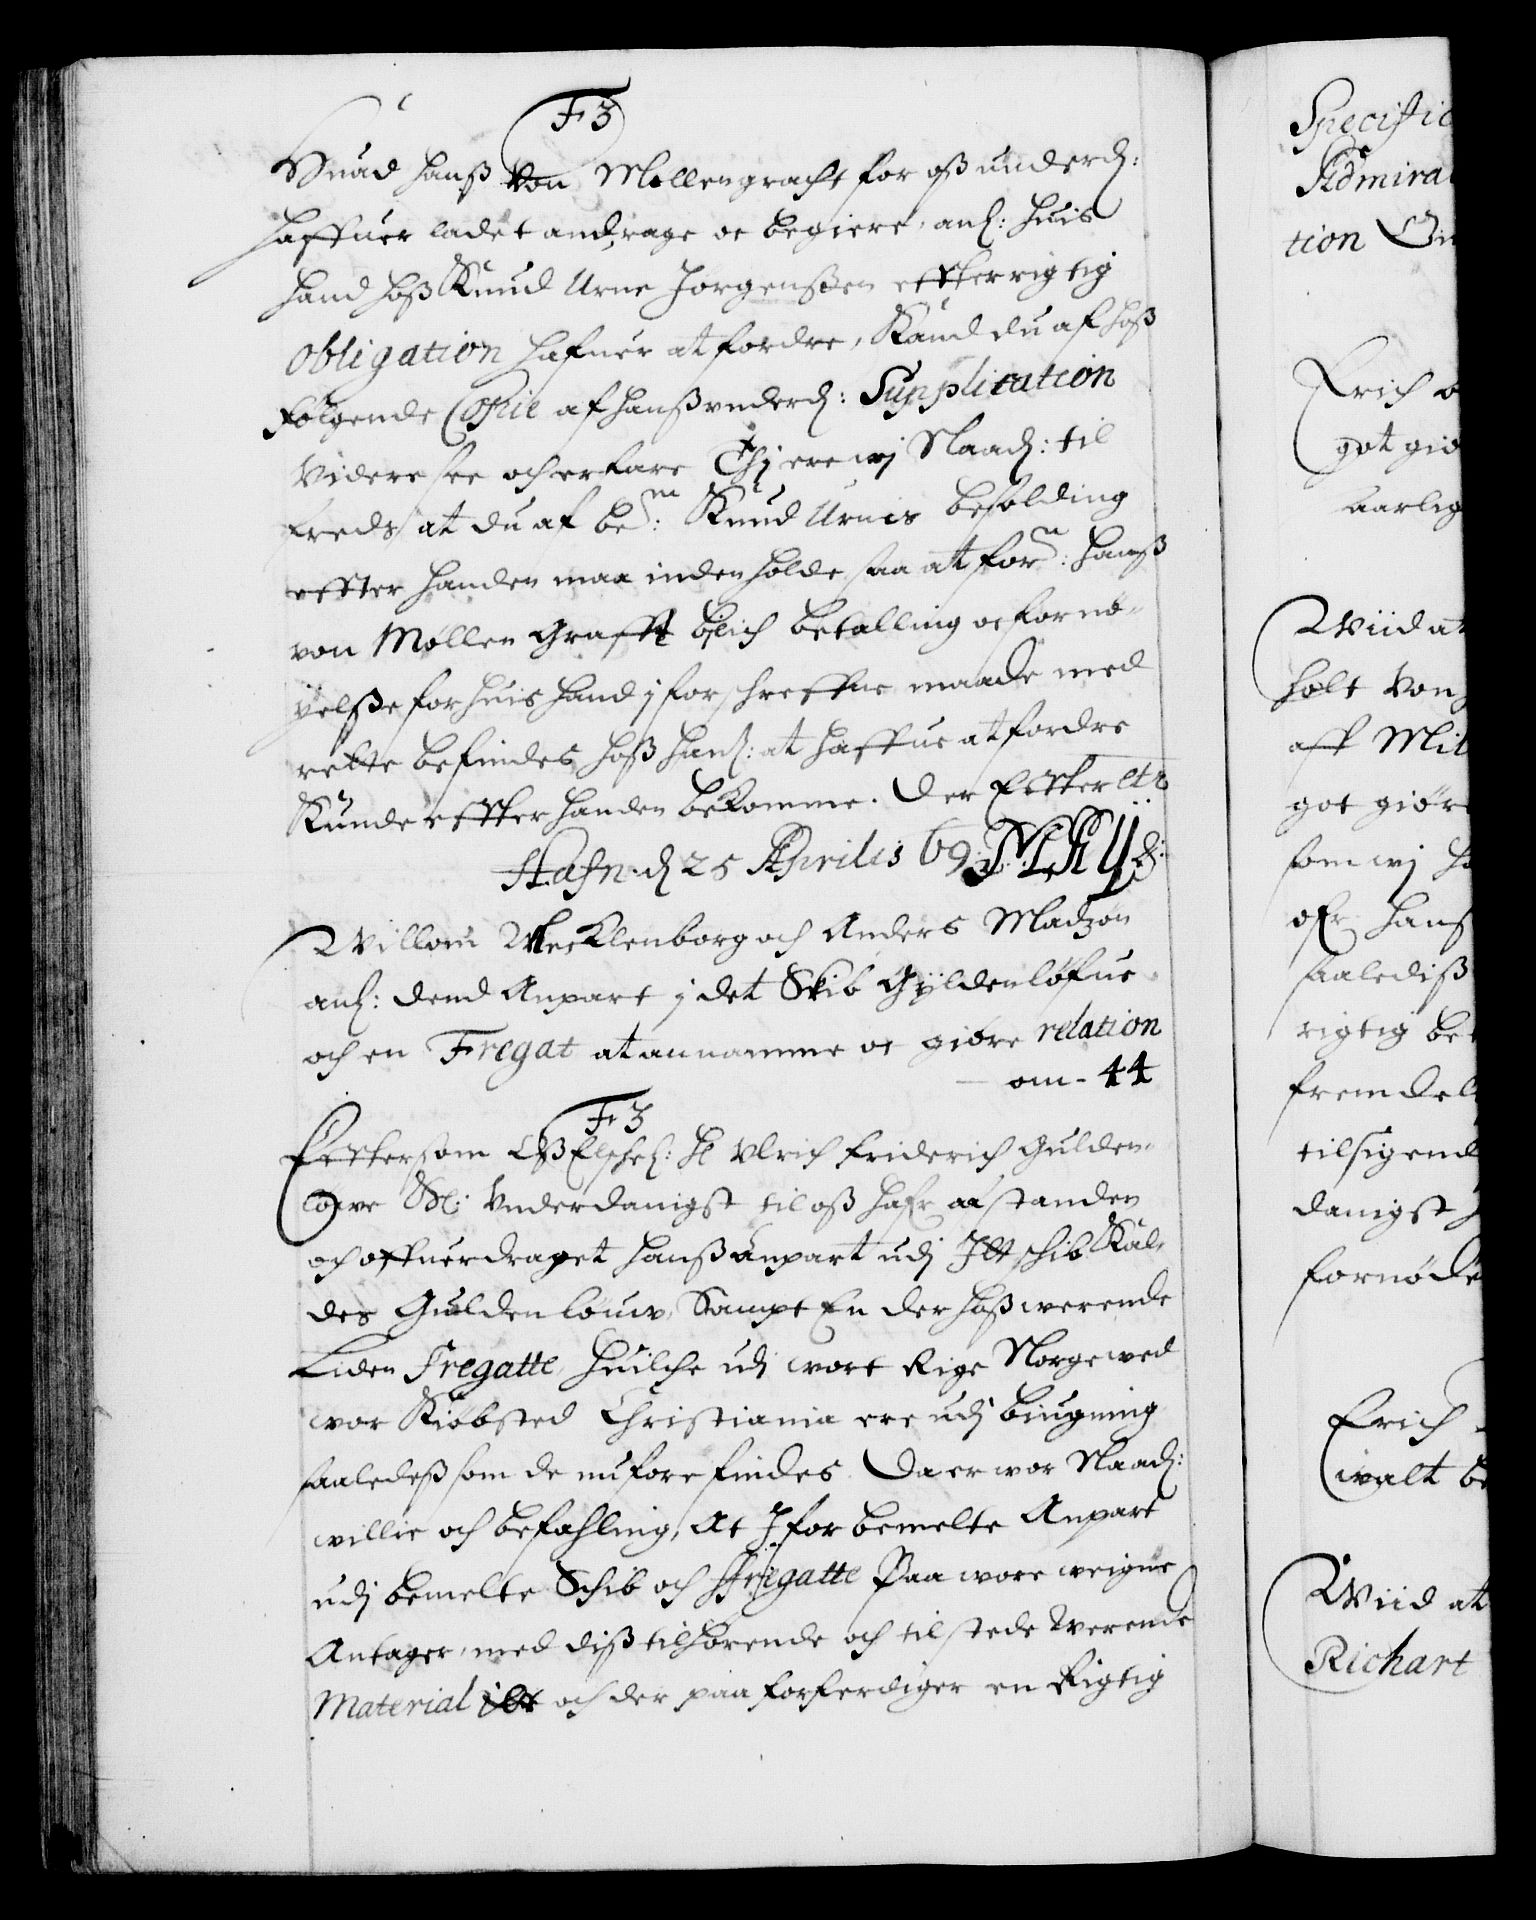 F3
Huad Hanß Von Mollengracht for oß underd:
haffuer ladet andrage oc begiere, anl: huis
hand hoß Knud Urne Jorgenßen effter rigtig
Obligation hafuer at fordre, Kand du af hoß
følgende Copie af hanß underd: Supplication
Videre see och erfare Thj ere wj Naad: til
freds at du af bem: Knud Urnis besolding
effter handen maa inden holde saa at forn: Hanß
von Møllen Grafft billich betalling oc fornø-
yelße for huis hand j forschreffne maade med
rette befindes hoß ham: at haffue at fordre
Kunde effter handen bekomme. Der Effter etc
Hafn. d 25 Aprilis 69.
Willom Mecklenborg och Anders Madzøn
anl: dend Anpart j det Skib Gyldenløfue
och en Fregat at annamme oc giøre relation
om - 44
F3
Effter som Oß Elschel: H Ulrich Friderich Gulden-
løwe Underdanigst til oß hafr aa standen
och offuerdraget hanß Anpart udj Itt schib Kal-
des Guldenlouw, Sampt En der hoß werende
Liden Fregatte, huilche udj wort Rige Norge wed
wor Kiøbsted Christiania ere udj biugning
saaledeß som de nu fore findes. Da er wor Naad:
willie och befahling, At I for bemelte Anpart
udj bemelte Schib och Fregatte Paa wore weigne
Antager, med diß tilhørende och tilstede Werende
Material och der paa forferdiger en Rigtig
Specific
Admira
tion
Erich
got giø
aarlig
Wiid at
holt Von
aff Mil
got giøre
som wj
ofr hans
saalediß
rigtig be
fremdel
tilsigend
danigst
fornøde
Erich
walt be
Wiid at
Richart